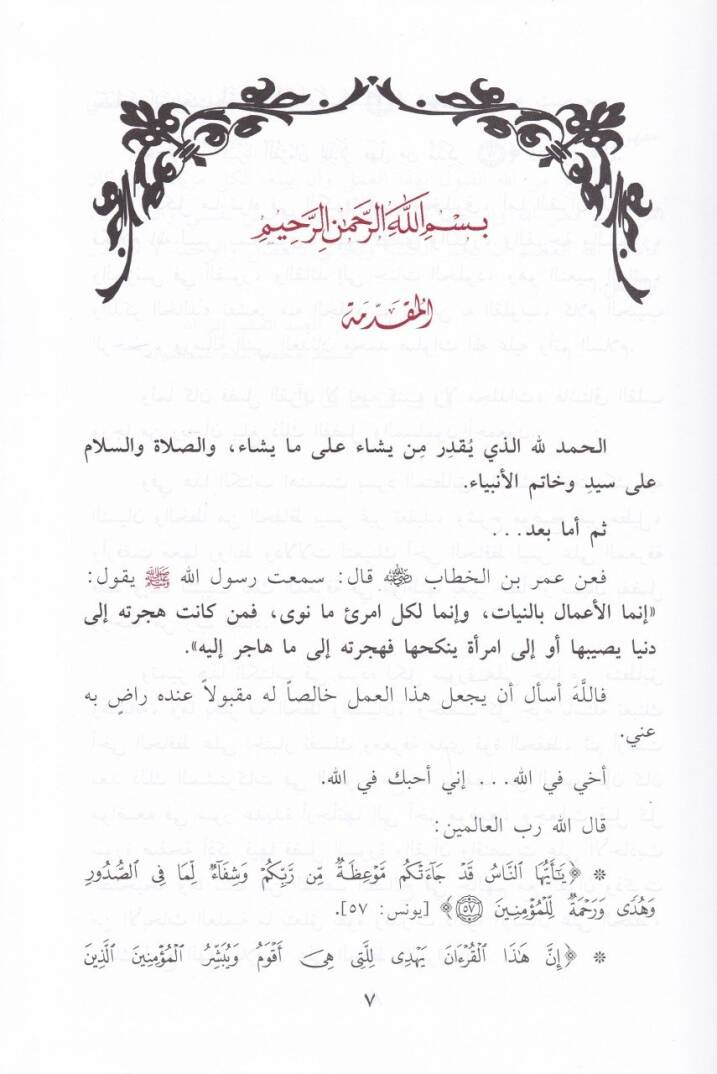 بِسْمِ اللَّهِ الرَّحْمَٰنِ الرَّحِيمِ
المقدمة
الحمد لله الذي يُقدِر مِن يشاء على ما يشاء، والصلاة والسلام
على سيدِ وخاتم الأنبياء.
ثم أما بعد...
فعن عمر بن الخطاب رضي الله عنه قال: سمعت رسول الله ﷺ يقول:
«إنما الأعمال بالنيات، وإنما لكل امرئ ما نوى، فمن كانت هجرته إلى
دنيا يصيبها أو إلى امرأة ينكحها فهجرته إلى ما هاجر إليه».
فاللَّهَ أسأل أن يجعل هذا العمل خالصاً له مقبولاً عنده راضٍ به
عني.
أخي في الله... إني أحبك في الله.
قال الله رب العالمين:
* ﴿يَٰٓأَيُّهَا ٱلنَّاسُ قَدْ جَآءَتْكُم مَّوْعِظَةٌ مِّن رَّبِّكُمْ وَشِفَآءٌ لِّمَا فِى ٱلصُّدُورِ
وَهُدًى وَرَحْمَةٌ لِّلْمُؤْمِنِينَ ٥٧﴾ [يونس: ٥٧].
* ﴿إِنَّ هَٰذَا ٱلْقُرْءَانَ يَهْدِى لِلَّتِى هِىَ أَقْوَمُ وَيُبَشِّرُ ٱلْمُؤْمِنِينَ ٱلَّذِينَ
٧